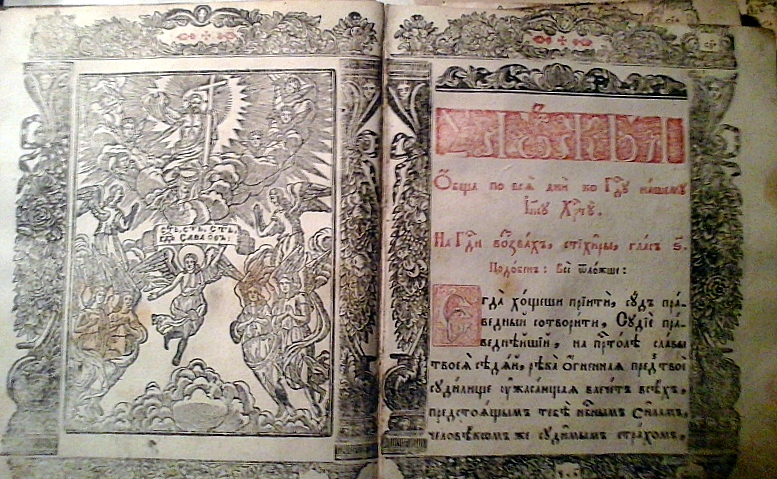 СТЪ, СТЪ, СТЪ,
ГДЬ САВАОѲЪ:
Ѻбща по всѧ дни ко Гдⷭ҇ꙋ нашемꙋ
Іи҃сꙋ Хрⷭ҇тꙋ.
На Гдⷭ҇и воззвахъ, стїхиры, гласъ ѕ҃.
Подобенъ: Всѐ ѿложше:
Егда̀ хо́щеши прїитѝ, сꙋ́дъ пра́-
ведный сотвори́ти, Сꙋдїѐ пра́-
веднѣйшїй, на прⷭ҇то́лѣ сла́вы
твоеѧ̀ сѣдѧ́й, рѣка̀ ѻ҆́гненнаѧ пред̾ твоѐ
сꙋди́лище ᲂу҆жаса́ющаѧ влече́тъ всѣ́хъ,
предстоѧ́щымъ тебѣ̀ нбⷭ҇нымъ си́ламъ,
человѣ́кѡмъ же сꙋди́мымъ стра́хомъ,